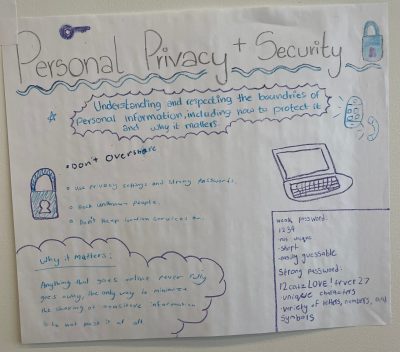 Personal Privacy + Security
Understanding and respecting the boundries of
personal information, including how to protect it
and why it matters.
• Don't Overshare
• Use privacy settings and strong passwords.
• Block unknown people.
• Don't keep location services on.
Why it matters:
Anything that goes online never fully
goes away, the only way to minimize
the sharing of sensitive information
is to not post it at all
weak password:
1234
- not unique
- short
- easily guessable
Strong password:
unique characters
- variety of letters, numbers, and
symbols